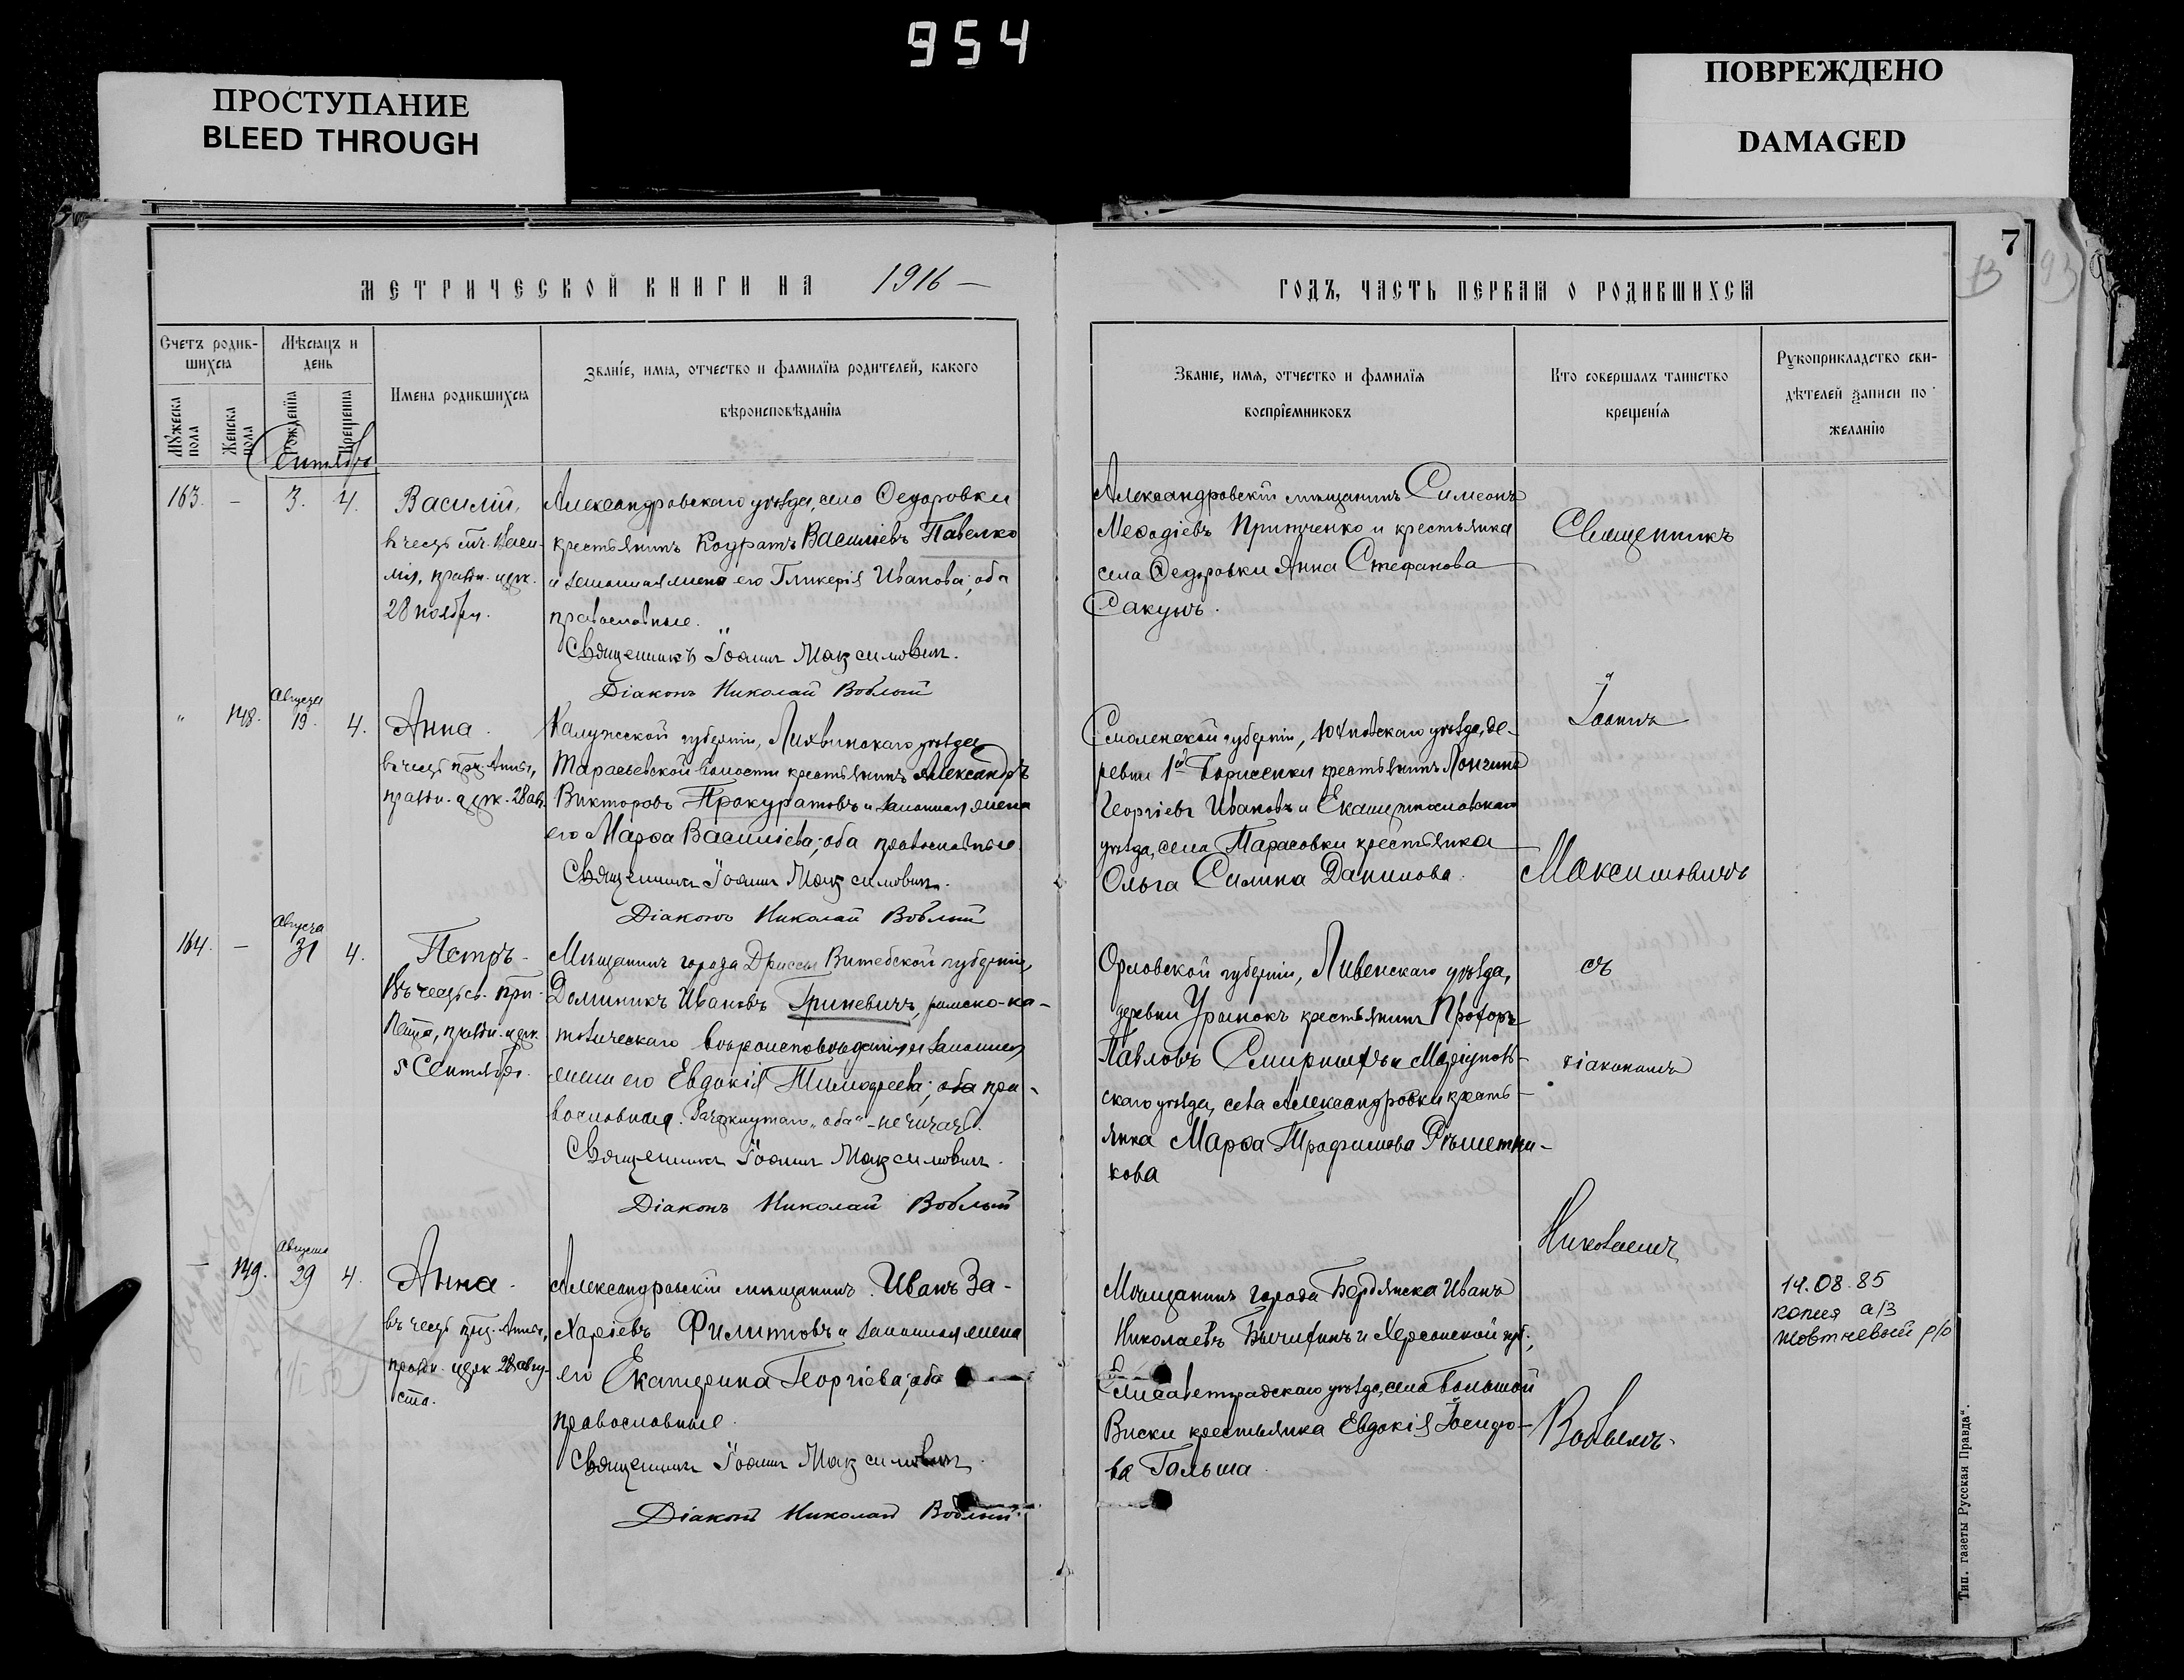 954
ПРОСТУПАНИЕ
BLEED THROUGH
ПОВРЕЖДЕНО
DAMAGED
7
МЕТРИЧЕСКОЙ КНИГИ НА 1916 —
ГОДЪ, ЧАСТЬ ПЕРВАЯ О РОДИВШИХСЯ
Счетъ родив-
шихся
Мѣсяцъ и
день
Имена родившихся
Званіе, имя, отчество и фамилія родителей, какого
вѣроисповѣданія
Мужеска пола
Женска пола
Рожденія
Крещенія
Званіе, имя, отчество и фамилія
воспріемниковъ
Кто совершалъ таинство
крещенія
Рукоприкладство сви-
дѣтелей записи по
желанію
Сентябрь
163. — 3. 4.
Василій,
въ честь Васи-
лія, праздн. церк.
28 ноября.
Александровскаго уѣзда, села Федоровки
крестьянинъ Кодратъ Василіевъ Павелко
и законная жена его Гликерія Иванова; оба
православные.
Священникъ Іоаннъ Максимович.
Діаконъ Николай Воблый
Александровскій мѣщанинъ Симеонъ
Меѳодіевъ Притченко и крестьянка
села Федоровки Анна Стефанова
Сакунъ.
" 148. Августа 19. 4.
Анна.
въ честь прп. Анны,
праздн. церк. 28 авг.
Калужской губерніи, Лихвинскаго уѣзда
крестьянинъ Александръ
Викторовъ Прокуратовъ и законная жена
его Марѳа Василіева; оба православные
Священникъ Іоаннъ Максимович.
Діаконъ Николай Воблый
Смоленской губерніи, Юхновскаго уѣзда, де-
ревни 1й Борисенки крестьянинъ Лонгинъ
Георгіевъ Ивановъ и Екатеринославскаго
уѣзда, села Тарасовки крестьянка
Ольга Силина Данилова.
164. — Августа 31 4.
Петръ
Въ честь св.
праздн. церк.
5 Сентября.
Мѣщанинъ города Дриссы Витебской губерніи,
Доминикъ Ивановъ Гриневичъ, римско-ка-
толическаго вѣроисповѣданія и законная
жена его Евдокія Тимоѳеева; оба пра-
вославная. Зачеркнутаго „оба" - не читать.
Священникъ Іоаннъ Максимович.
Діаконъ Николай Воблый
Орловской губерніи, Ливенскаго уѣзда,
деревни крестьянинъ Прохоръ
Павловъ Смирныхъ и Маріуполь-
скаго уѣзда, села Александровки кресть-
янка Марѳа Трофимова Рѣшетни-
кова
— 149. Августа 29 4.
Анна.
въ честь прп. Анны,
праздн. церк. 28 авгу-
ста.
Александровскій мѣщанинъ Иванъ За-
харіевъ Филиповъ и законная жена
его Екатерина Георгіева; оба
православные.
Священникъ Іоаннъ Максимович
Діаконъ Николай Воблый.
Мѣщанинъ города Бердянска Иванъ
Николаевъ и Херсонской губ.,
Елисаветградскаго уѣзда, села Большой
Виски крестьянка Евдокія Іосифо-
ва Гальша.
Священникъ
Іоаннъ
Максимовичъ
съ
діакономъ
Николаемъ
Воблымъ.
14.08.85
копия а/з
жовтневый р/о
Тип. газеты Русская Правда".